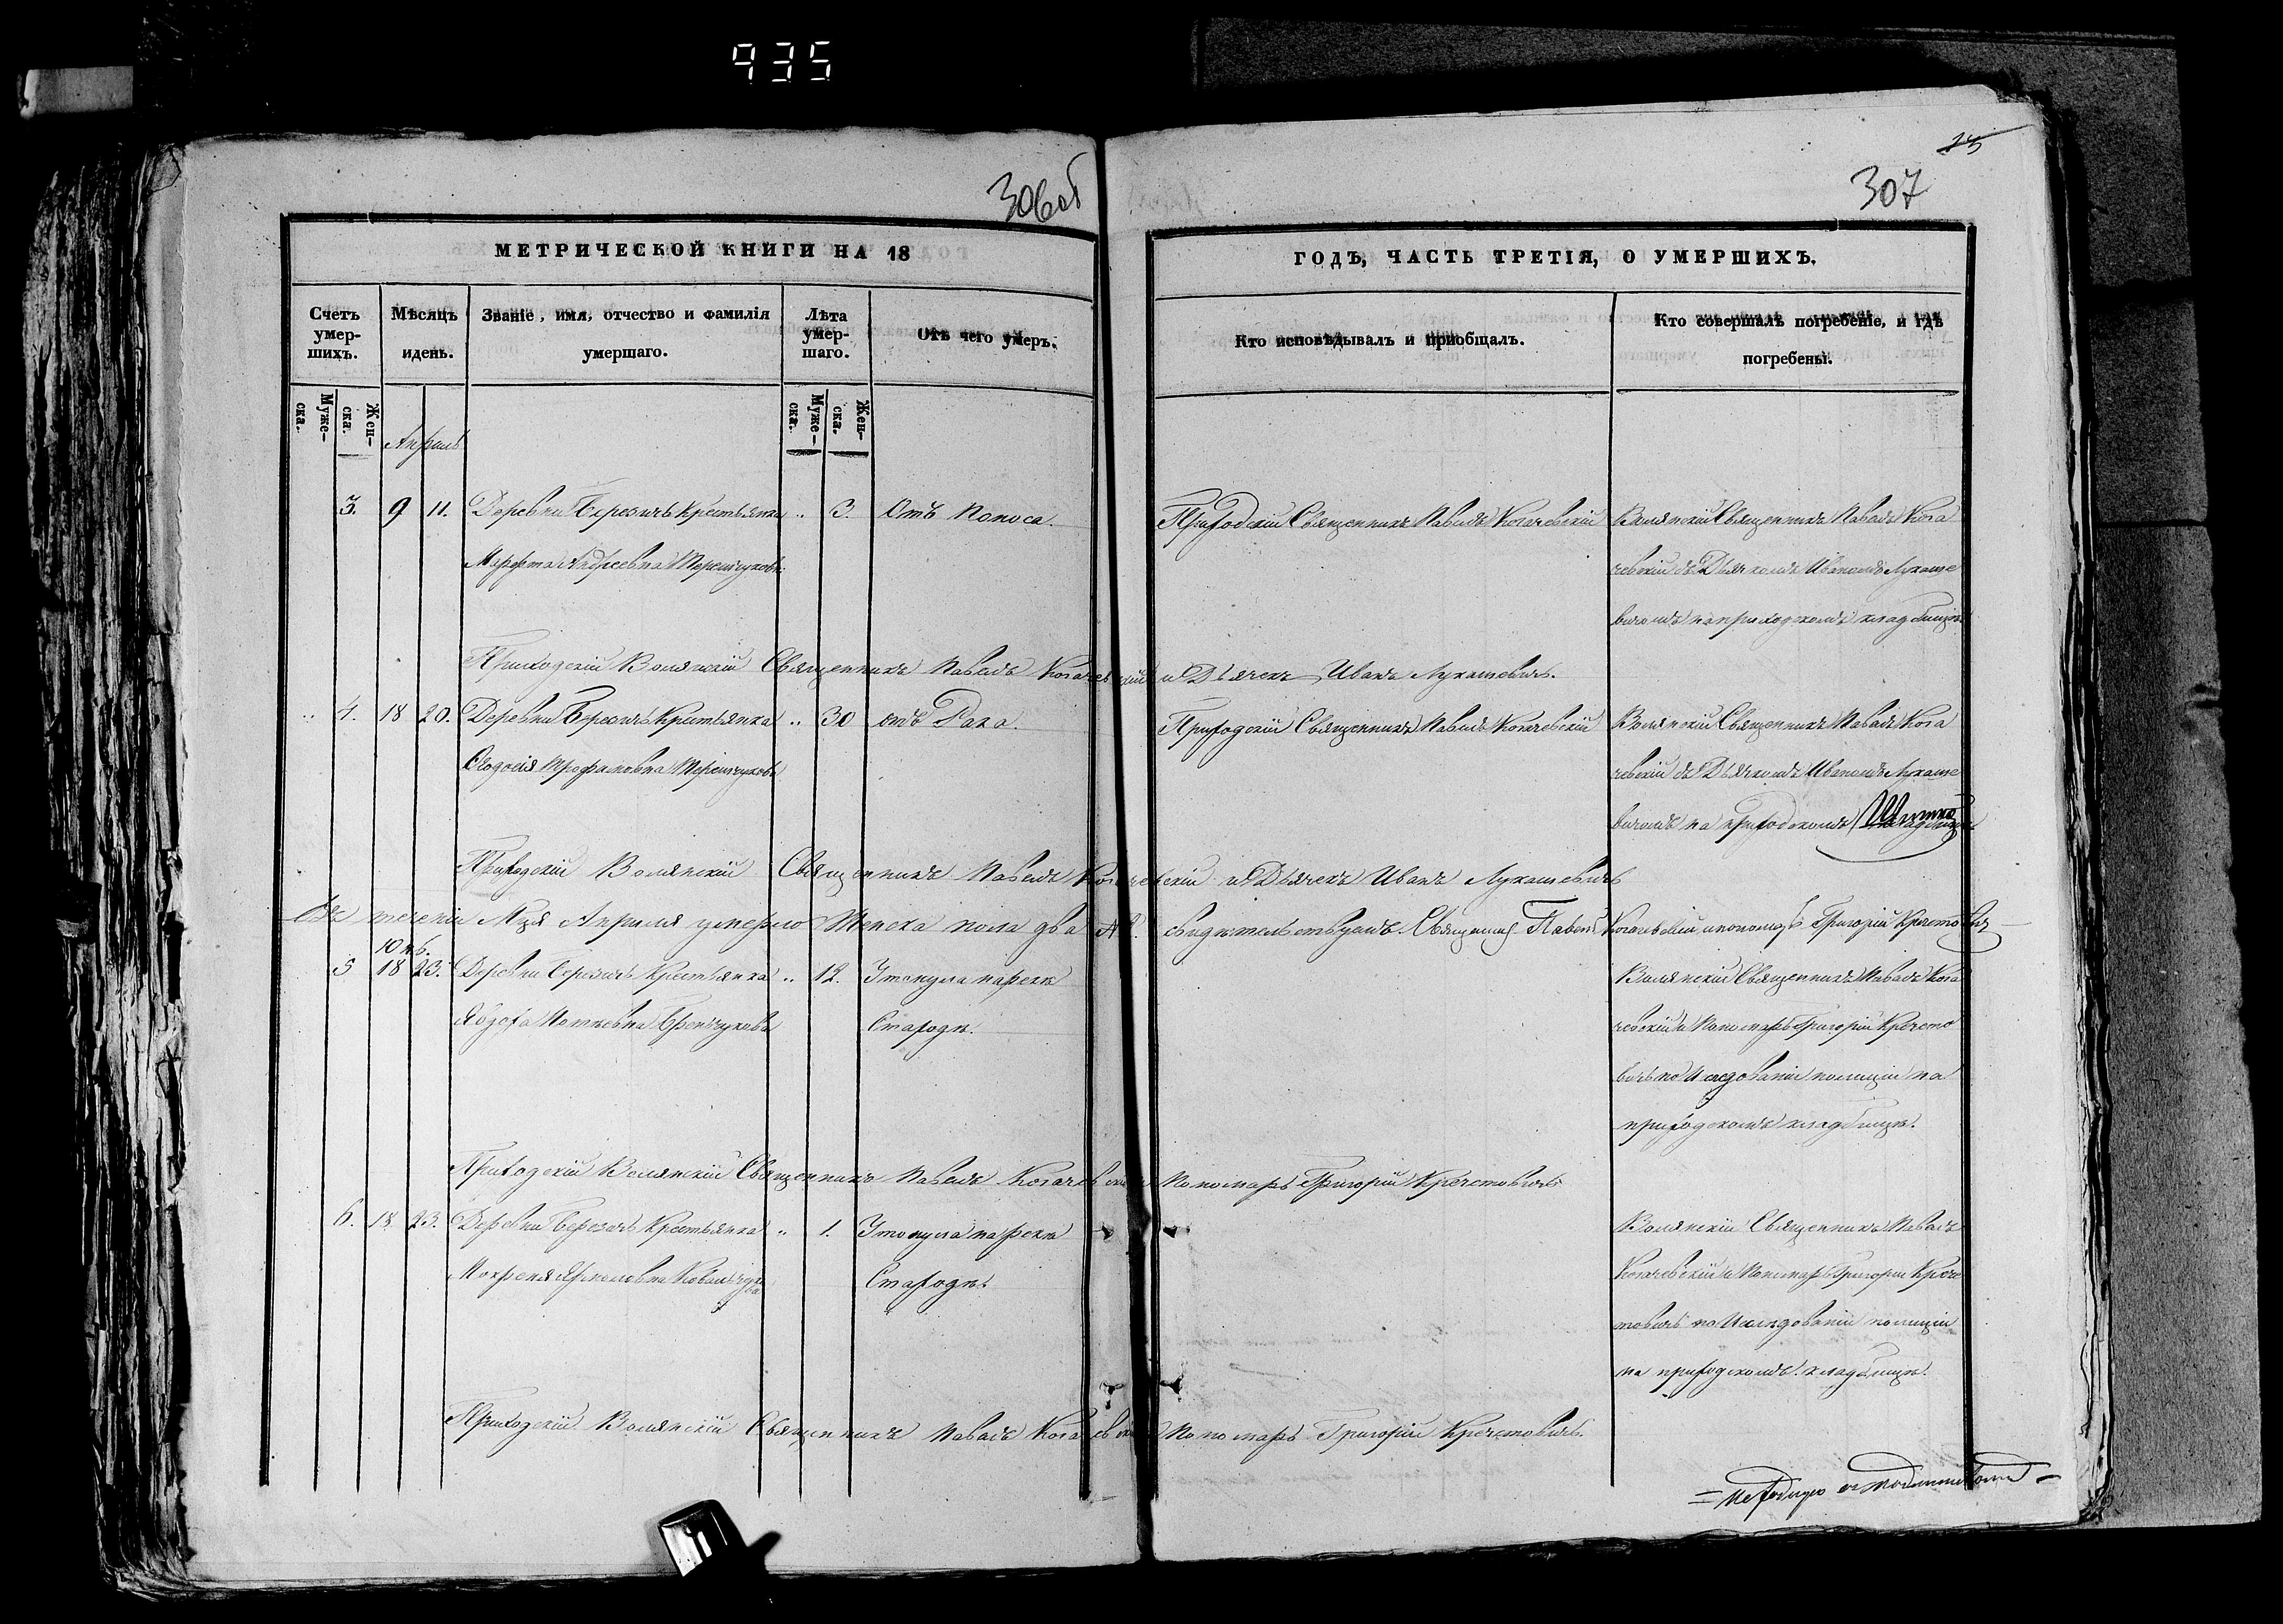 935
306об
25
307
МЕТРИЧЕСКОЙ КНИГИ НА 18
ГОДЪ, ЧАСТЬ ТРЕТІЯ, О УМЕРШИХЪ.
Счетъ умер-шихъ.
Мѣсяцъ идень.
Званіе, имя, отчество и фамилія умершаго.
Лѣта умер-шаго.
Отъ чего умеръ.
Кто исповѣдывалъ и пріобщалъ.
Кто совершалъ погребеніе, и гдѣ погребены.
Муже-ска.
Жен-ска.
Муже-ска.
Жен-ска.
Апрель
3. 9 11. Деревни Березичъ Крестьянка „ 3. Отъ Поноса. Приходскій Священникъ Павелъ Когачевскій Волянскій Священникъ Павелъ Кога
Марфта Андреевна чевскій съ Дьячкомъ Иваномъ Лукаше
вичомъ на приходскомъ кладбищѣ
Приходскій Волянскій Священникъ Павелъ Когачевскій и Дьячекъ Иванъ Лукашевичъ.
„ 4. 18 20. Деревни Березичъ Крестьянка „ 30 отъ Рака. Приходскій Священникъ Павелъ Когачевскій Волянскій Священникъ Павелъ Кога
Феодосія чевскій съ Дьячкомъ Иваномъ Лукаше
вичомъ на приходскомъ кладбищѣ
Приходскій Волянскій Священникъ Павелъ Когачевскій и Дьячекъ Иванъ Лукашевичъ
Въ теченіи Мця Апреля умерло Женска пола два свидетельствуемъ. Священникъ Павелъ Когачевскій пономарь Григорій Кречетовичъ
10кб.
5 18 23. Деревни Березичъ Крестьянка „ 12. Утонула нареки Волянскій Священникъ Павелъ Кога
Стародн. чевскій и Пономарь Григорій Кречето
вичъ по изследованіи полиціи на
приходскомъ кладбищѣ.
Приходскій Волянскій Священникъ Павелъ Когачевскій Пономарь Григорій Кречетовичъ
6. 18 23. Деревни Березичъ Крестьянка „ 1. Утонула нареки Волянскій Священникъ Павелъ
Мокреня Стародн. Когачевскій и Пономарь Григорій Крече
товичъ по изследованіи полиціи
на приходскомъ кладбищѣ.
Приходскій Волянскій Священникъ Павелъ Когачевскій Пономарь Григорій Кречетовичъ.